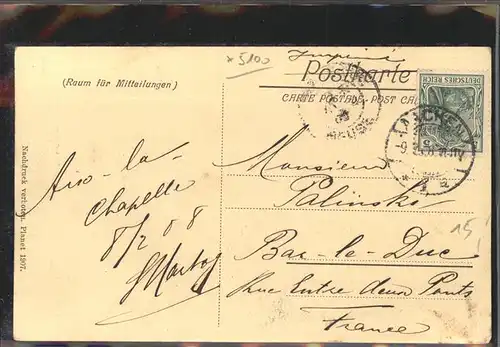 x 5100
Imprimé
Postkarte
(Raum für Mitteilungen)
CARTE POSTALE - POST CA
DEUTSCHES REICH
MEUSE
AACHEN
Monsieur
Palinsko
Bar-le-Duc
Rue Entre deux Ponts
France
15
Aix-la-
Chapelle
8/2 08
Nachdruck verboten. Planet 1907.